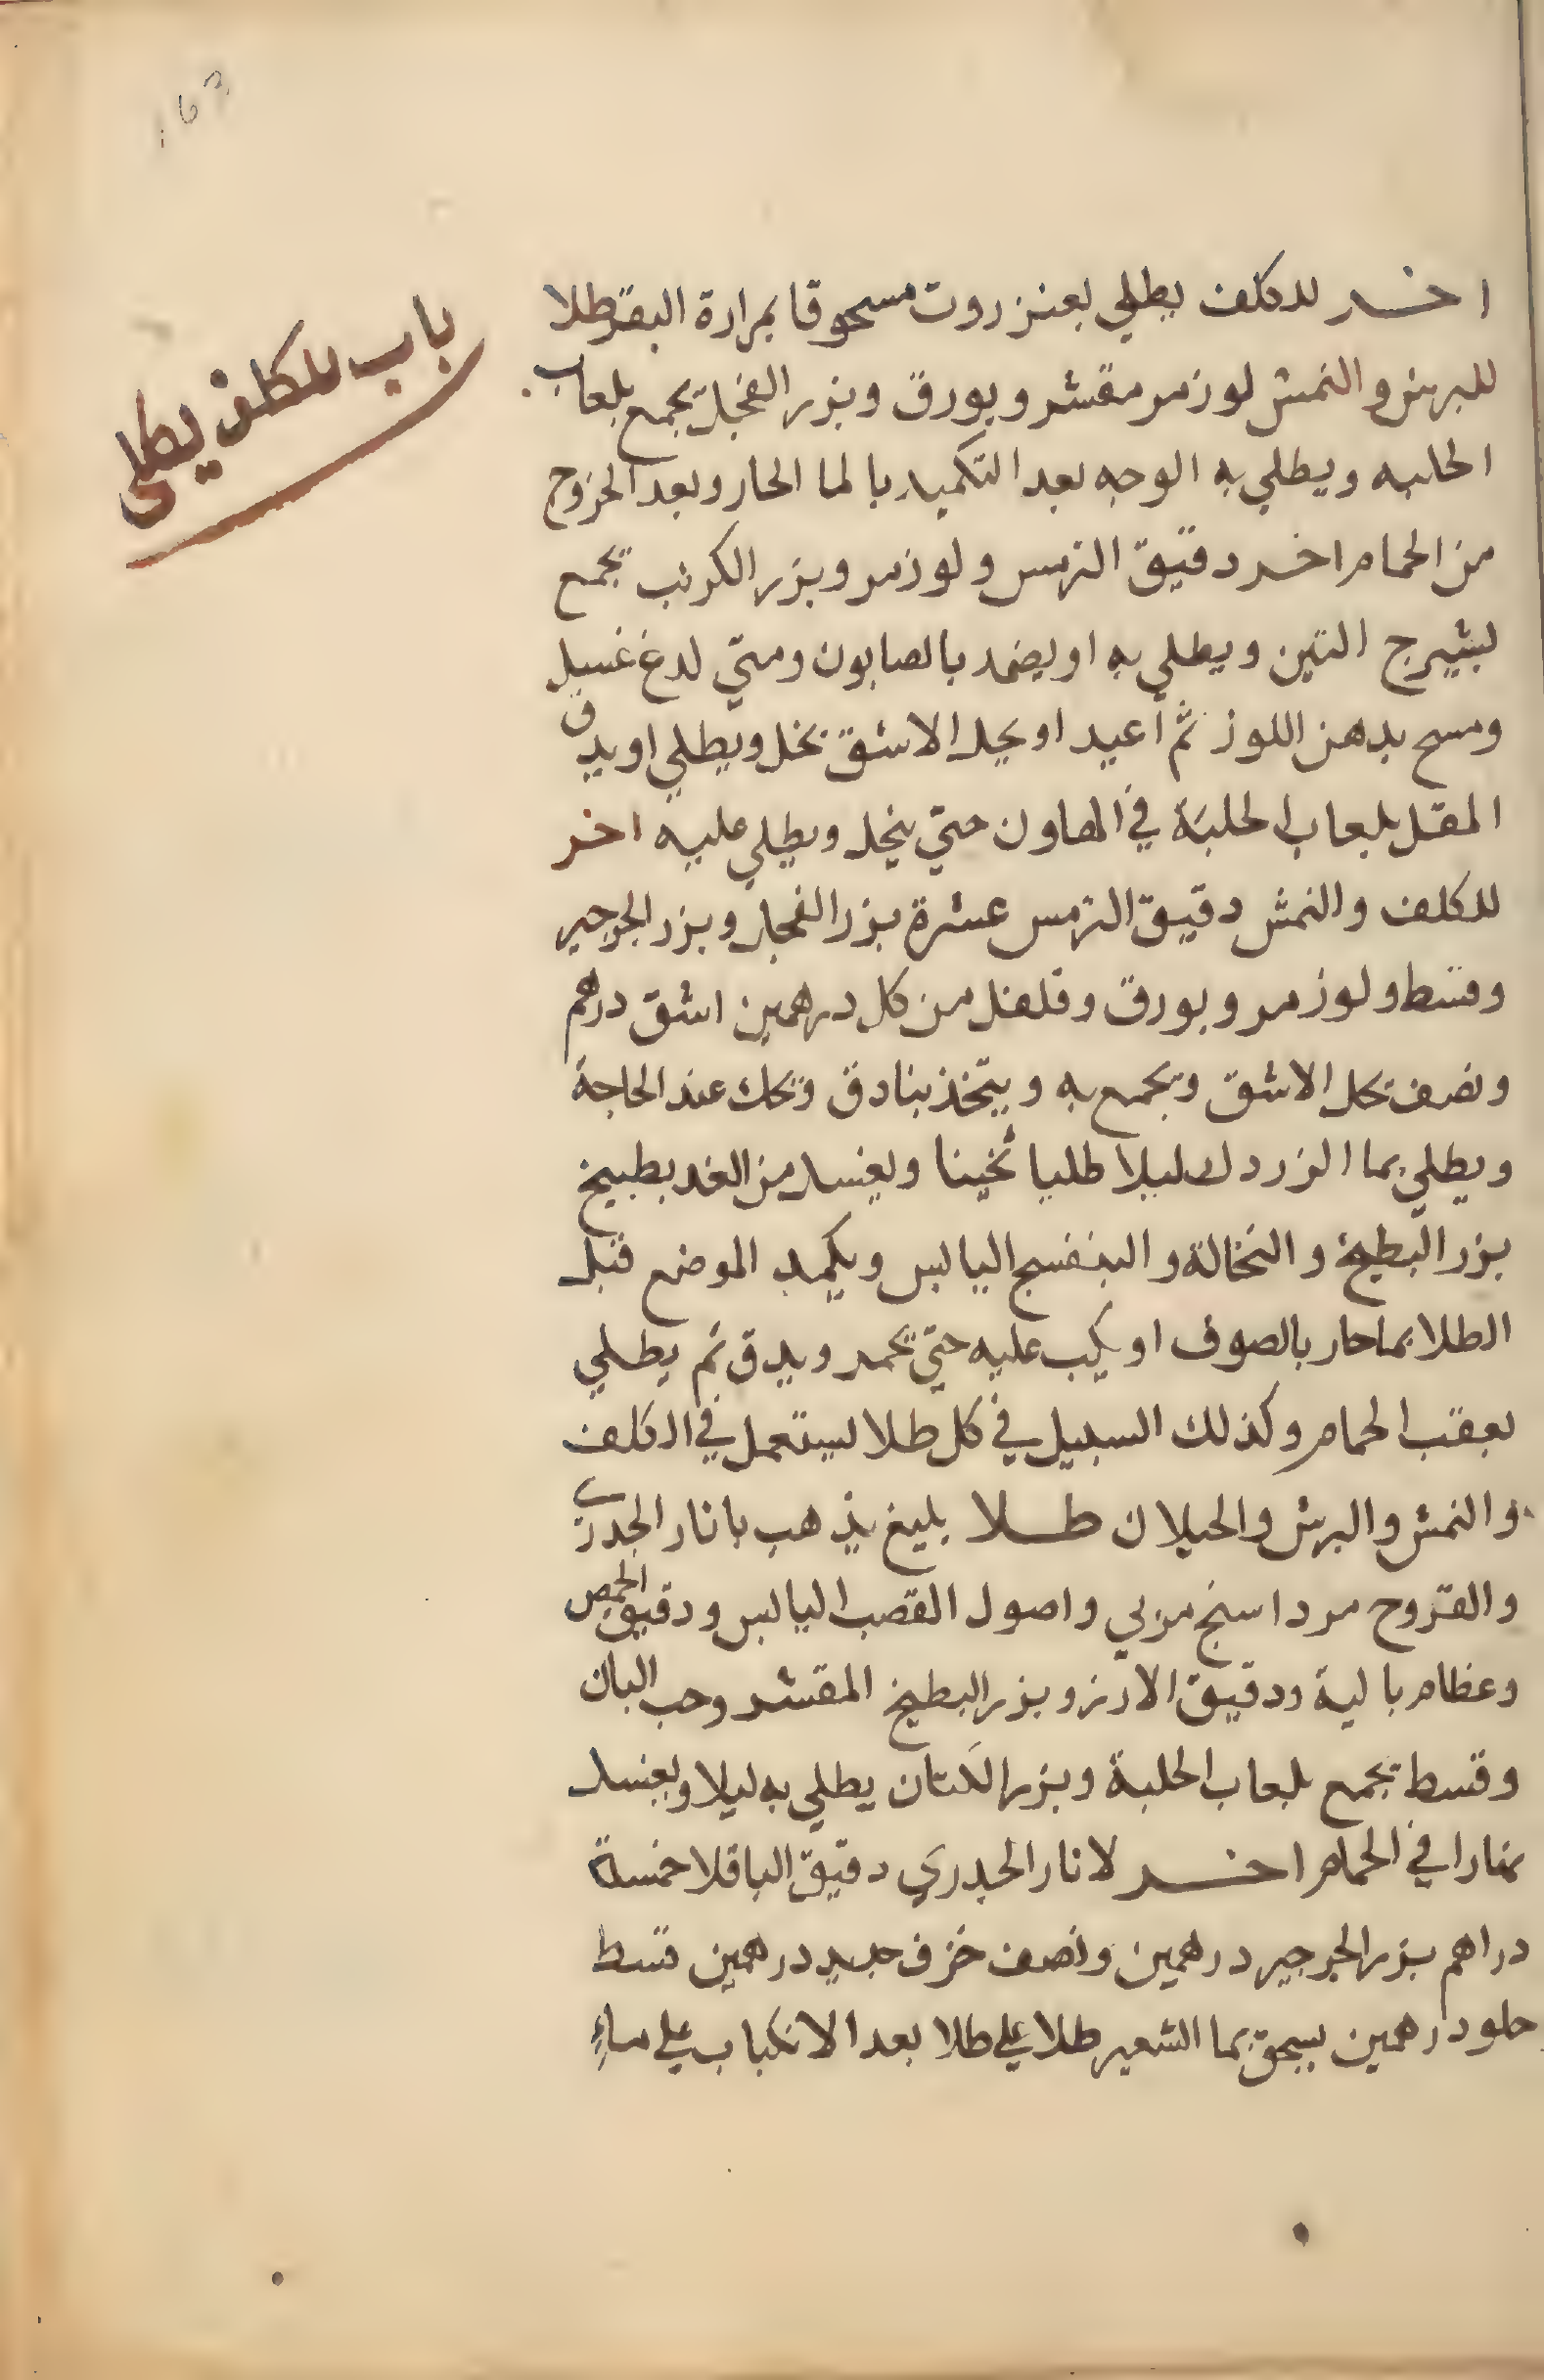 163
باب للكلف يطلى
اخر للكلف يطلي بعنزروت مسحوقا بمرارة البقر طلا
للبرش والنمش لوز مر مقشر وبورق وبزر الفجل تجمع بلعاب
الحلبه ويطلي به الوجه بعد التكميد بالما الحار وبعد الخروج
من الحمام اخر دقيق الترمس ولوز مر وبزر الكرنب تجمع
بشيرج التين ويطلي به او يضمد بالصابون ومتي لدغ غسل
ومسح بدهن اللوز ثم اعيد او يحل الاشق بخل ويطلي او يدق
المقل بلعاب الحلبة في الهاون حتي ينحل ويطلي عليه اخر
للكلف والنمش دقيق الترمس عشرة بزر الفجل وبزر الجرجير
وقسط ولوز مر وبورق وفلفل من كل درهمين اشق درهم
ونصف تحل الاشق وتجمع به ويتخذ بنادق وتحك عند الحاجة
ويطلي بما الزردك ليلا طليا ثخينا ويغسل من الغد بطبيخ
بزر البطيخ والنخالة والبنفسج اليابس ويكمد الموضع قبل
الطلا بما حار بالصوف او يكب عليه حتي يحمر ويدق ثم يطلي
بعقب الحمام وكذلك السبيل في كل طلا يستعمل في الكلف
والنمش والبرش والخيلان طلا بليغ يذهب باثار الجدري
والقروح مرداسنج مربي واصول القصب اليابس ودقيق الحمص
وعظام بالية ودقيق الارز وبزر البطيخ المقشر وحب البان
وقسط تجمع بلعاب الحلبة وبزر الكتان يطلي به ليلا ويغسل
نهارا في الحمام اخر لاثار الجدري دقيق الباقلا خمسة
دراهم بزر الجرجير درهمين ونصف خزف جديد درهمين قسط
حلو درهمين يسحق بما الشعير طلا علي طلا بعد الانكباب علي ماء